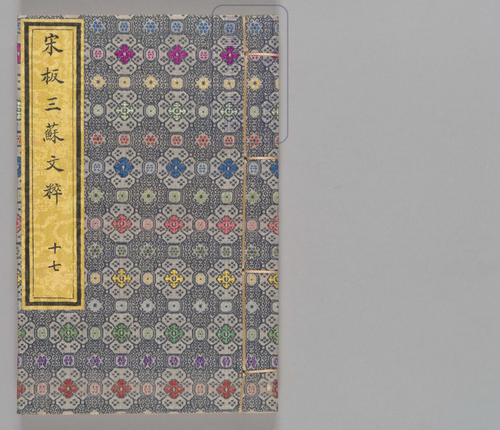 宋板三蘇文粹
十七